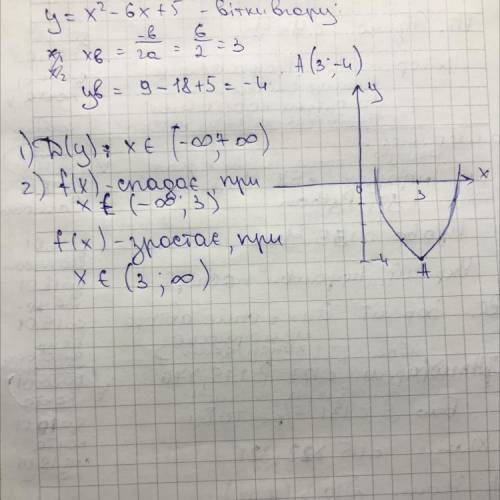 y = x² - 6x + 5 - вітки вгору
x₁ xв = -b/2a = 6/2 = 3
x₂
yв = 9 - 18 + 5 = -4
A (3; -4)
1) D(y): x ∈ (-∞, +∞)
2) f(x) - спадає, при
x ∈ (-∞; 3)
f(x) - зростає, при
x ∈ (3; ∞)
y
x
0
3
-4
A